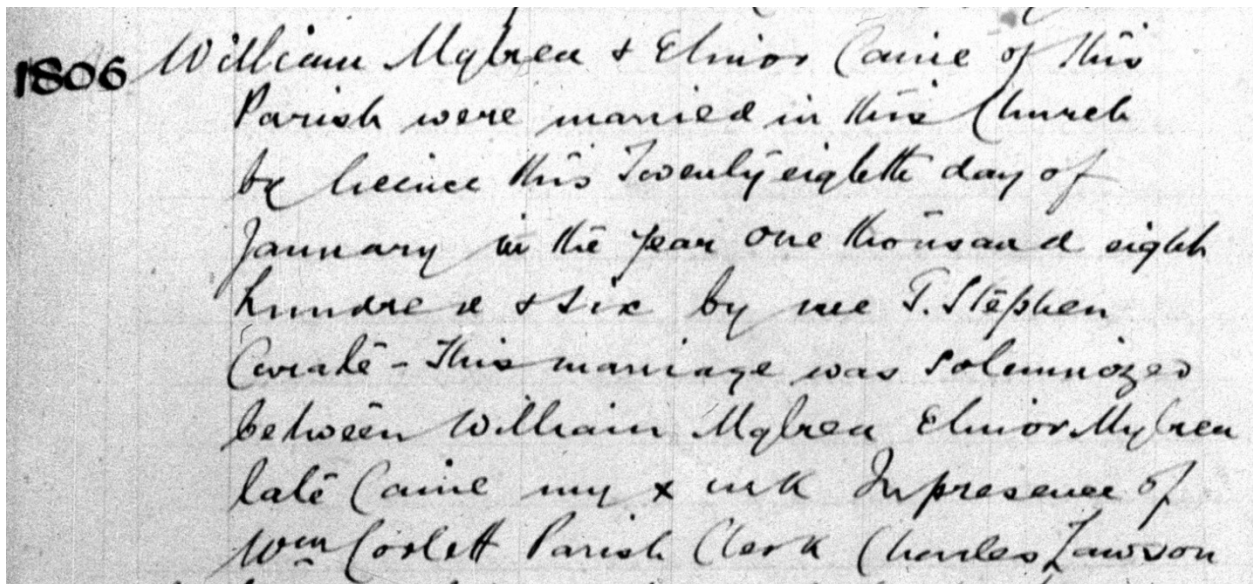 1806 William Mylrea & Elinor Caine of this
Parish were married in this Church
by licince this Twenty eighth day of
January in the year one thousand eight
hundred & six by me T. Stephen
Curate - This marriage was solemnized
between William Mylrea Elinor Mylrea
late Caine my x mk In presence of
Wm Corlett Parish Clerk Charles Lawson